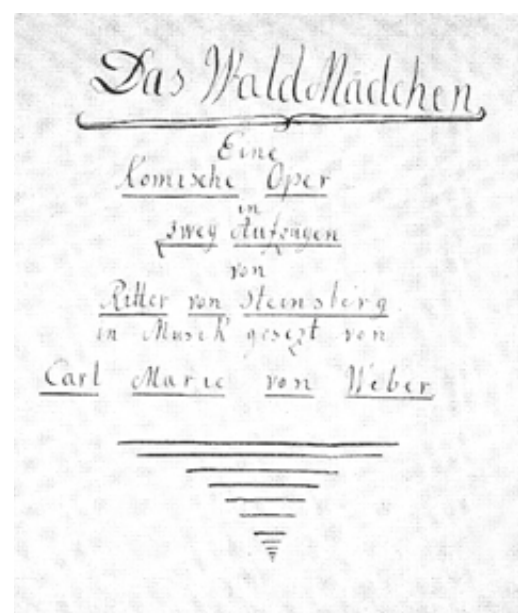 Das Wald Mädchen
Eine
Komische Oper
in
zwey Aufzügen
von
Ritter von Steinsberg
in Musik gesezt von
Carl Marie von Weber